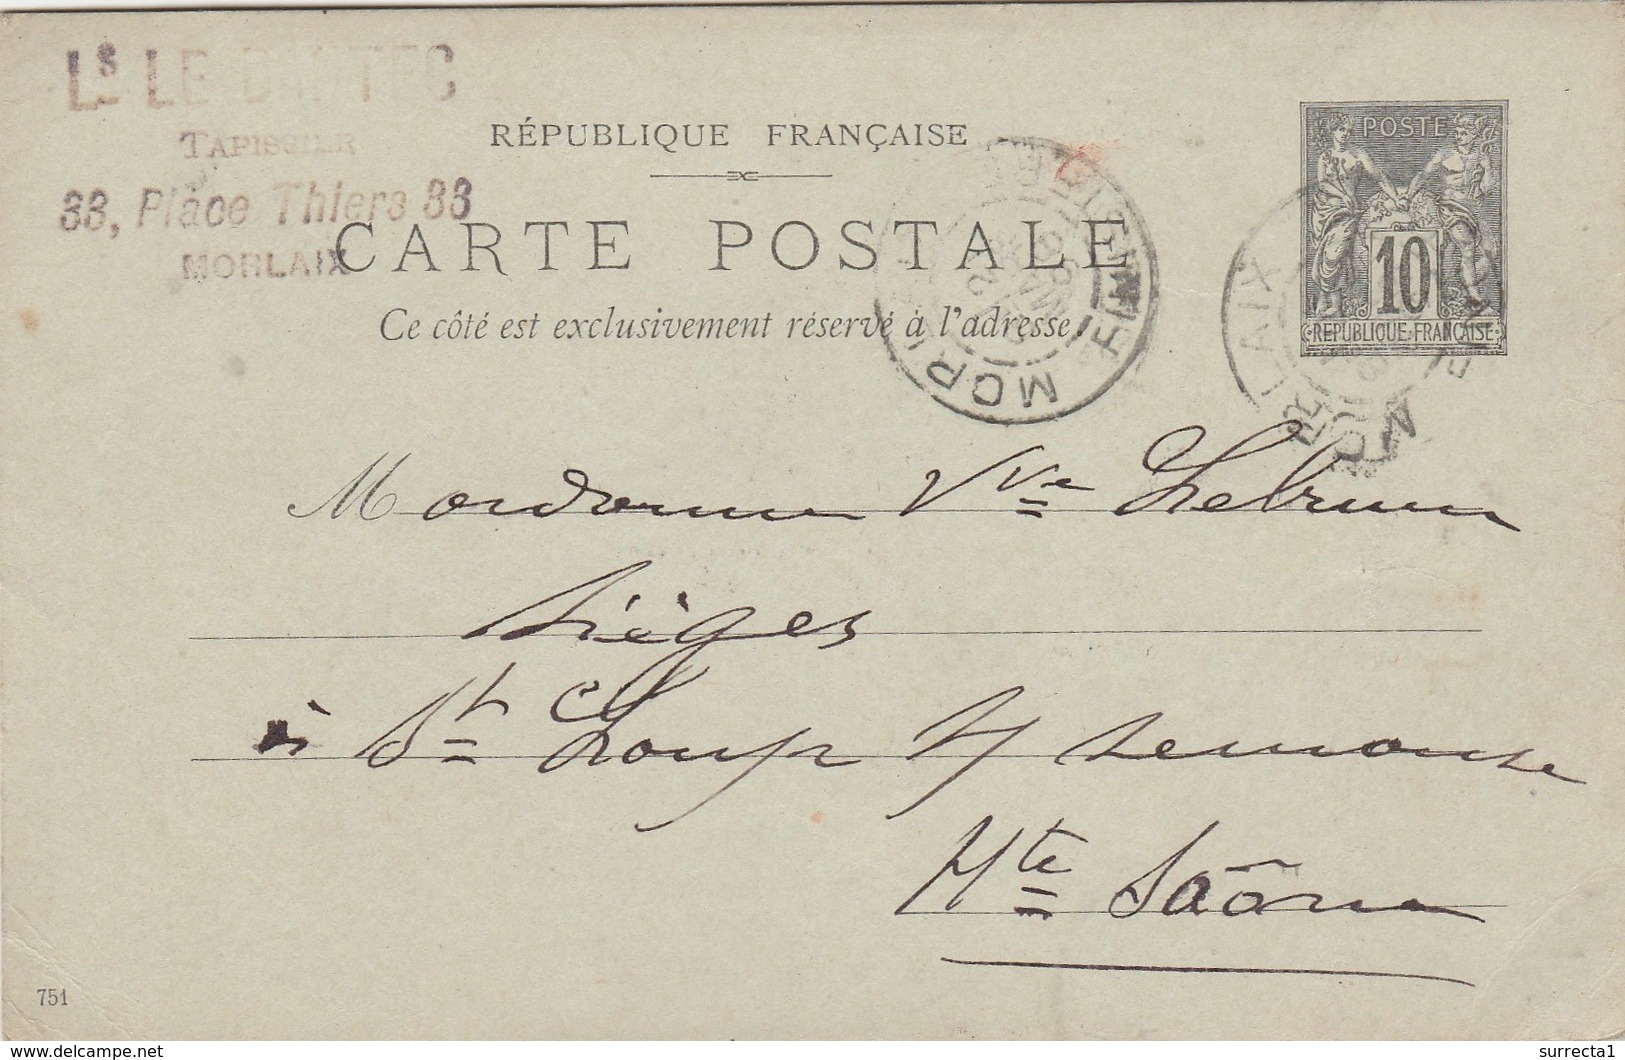 Ls LE DANTEC
TAPISSIER
33, Place Thiers 33
MORLAIX
RÉPUBLIQUE FRANÇAISE
CARTE POSTALE
Ce côté est exclusivement réservé à l'adresse.
POSTE
10
REPUBLIQUE FRANÇAISE
MORLAIX
FINISTERE
MORLAIX
Madame Vve Lebrun
Sièges
à St Loup s/ semouse
Hte Saône
751
surrecta1